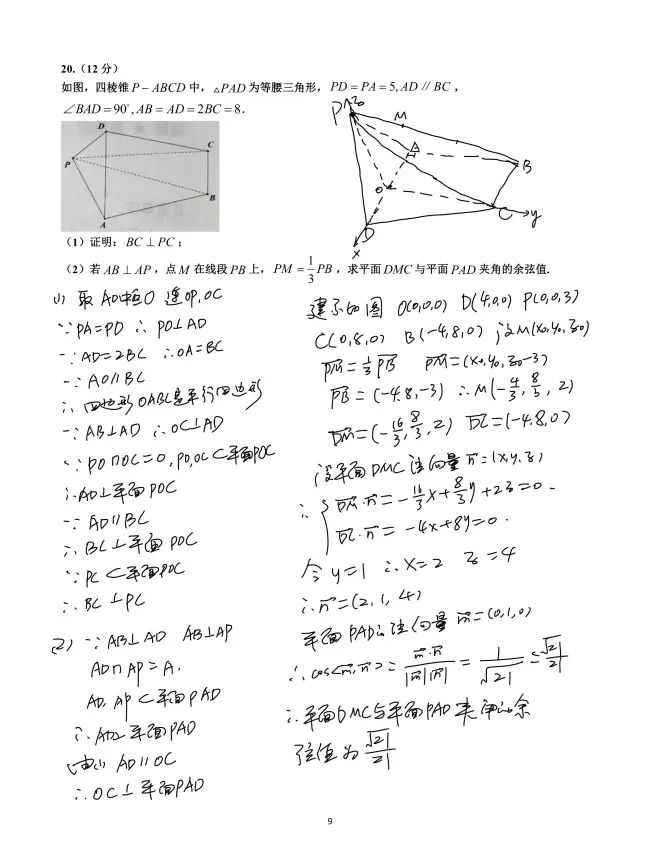 20.（12 分）
如图，四棱锥 P－ABCD 中，△PAD 为等腰三角形，PD＝PA＝5, AD∥BC，
∠BAD＝90°, AB＝AD＝2BC＝8．
D
C
P
B
A
P
z
M
A
B
O
D
C
y
x
（1）证明：BC⊥PC；
（2）若 AB⊥AP，点 M 在线段 PB 上，PM＝1/3PB，求平面 DMC 与平面 PAD 夹角的余弦值.
(1) 取AD中点O 连OP,OC
∵PA=PD ∴PO⊥AD
∵AD=2BC ∴OA=BC
∵AO∥BC
∴四边形OABC是平行四边形
∵AB⊥AD ∴OC⊥AD
∵PO∩OC=O, PO,OC⊂平面POC
∴AD⊥平面POC
∵AD∥BC
∴BC⊥平面POC
∵PC⊂平面POC
∴BC⊥PC
(2) ∵AB⊥AD AB⊥AP
AD∩AP=A.
AD, AP⊂平面PAD
∴AB⊥平面PAD
由(1) AD∥OC
∴OC⊥平面PAD
建系如图 O(0,0,0) D(4,0,0) P(0,0,3)
C(0,8,0) B(-4,8,0) 设M(x₀,y₀,z₀)
PM=1/3PB PM=(x₀,y₀,z₀-3)
PB=(-4,8,-3) ∴M(-4/3,8/3,2)
DM=(-16/3,8/3,2) DC=(-4,8,0)
设平面DMC法向量n=(x,y,z)
∴{DM·n=-16/3x+8/3y+2z=0.
DC·n=-4x+8y=0.
令y=1 ∴x=2 z=4
∴n=(2,1,4)
平面PAD的法向量m=(0,1,0)
∴cos<m,n>=m·n/|m||n|=1/√21=√21/21
∴平面DMC与平面PAD夹角的余
弦值为√21/21
9